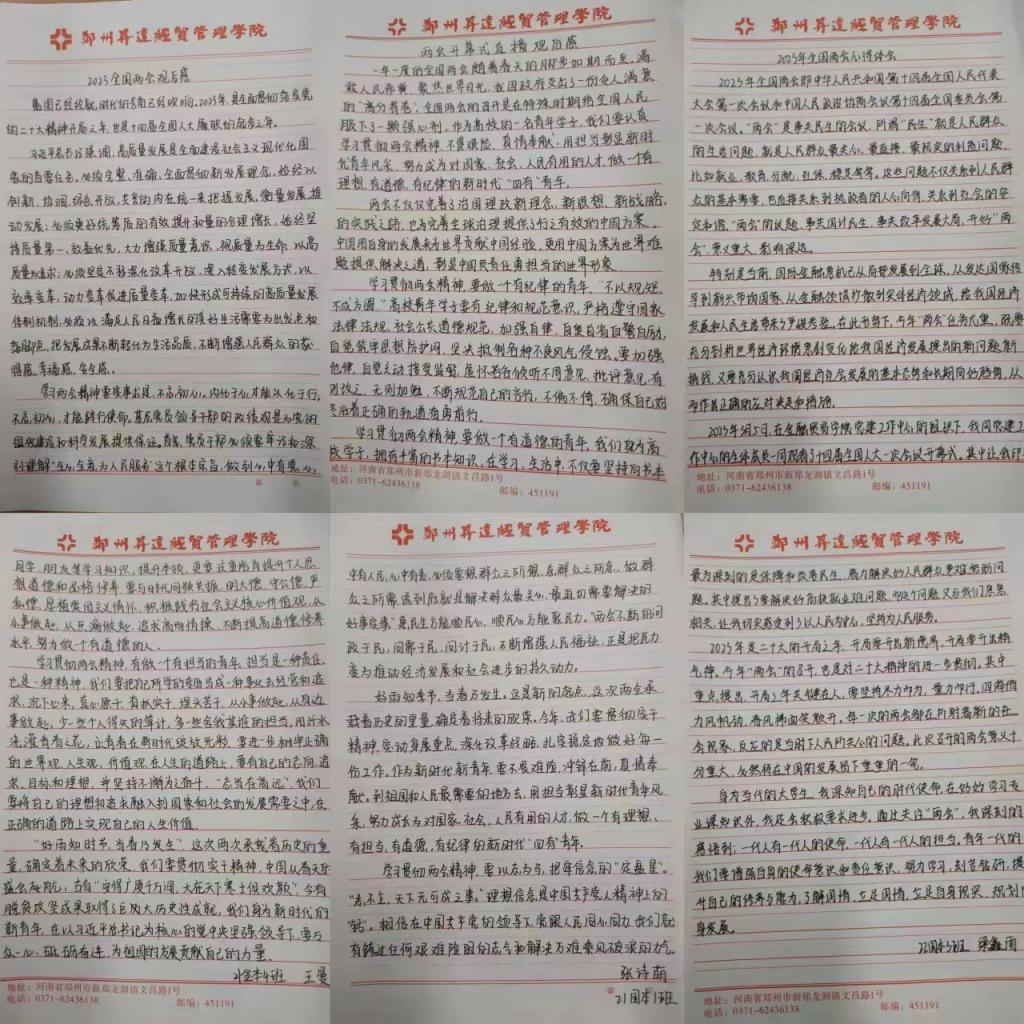 郑州升达经贸管理学院
2023全国两会观后感
蓝图已经绘就,时代的号角已经吹响。2023年,是全面贯彻落实党
的二十大精神开局之年,也是十四届全国人大履职的起步之年。
习近平总书记强调,高质量发展是全面建设社会主义现代化国
家的首要任务。必须完整、准确、全面贯彻新发展理念,始终以
创新、协调、绿色、开放、共享的内在统一来把握发展、衡量发展、推
动发展;必须更好统筹质的有效提升和量的合理增长,始终坚
持质量第一、效益优先,大力增强质量意识,视质量为生命,以高
质量为追求;必须坚定不移深化改革开放、深入转变发展方式,以
效率变革、动力变革促进质量变革,加快形成可持续的高质量发展
体制机制;必须以满足人民日益增长的美好生活需要为出发点和
落脚点,把发展成果不断转化为生活品质,不断增强人民群众的获
得感、幸福感、安全感。
学习两会精神要实事求是,不忘初心。内化于心,才能外化于行,
不忘初心,才能践行使命。
到理解"全心全意为人民服务"这个根本宗旨,做到心中有党,心
郑州升达经贸管理学院
两会开幕式直播观后感
一年一度的全国两会随着春天的脚步如期而至,满
载人民希冀,聚焦世界目光,我国政府交出了一份令人满意
的"高分答卷",全国两会的召开是在特殊时期给全国人民
服下了一颗强心剂,作为高校的一名青年学子,我们要认真
学习贯彻两会精神,不畏艰险,真情奉献,用担当彰显新时
代青年风采,努力成为对国家、社会、人民有用的人才,做一个有
理想,有道德,有纪律的新时代"四有"青年。
两会不仅仅完善了治国理政新理念、新思想、新战略
的实践之路,也为完善全球治理提供了行之有效的中国方案。
中国用自身的发展来为世界贡献中国经验,更用中国方案为世界难
题提供解决之道,彰显中国负责任勇担当的世界形象。
学习贯彻两会精神,要做一个有纪律的青年。"不以规矩,
不成方圆。"高校青年学子要有纪律和规范意识,严格遵守国家
法律法规,社会公共道德规范,加强自律,自重自省自警自励,
自觉筑牢思想防护网,坚决抵制各种不良风气侵蚀。要切强
他律,自觉主动接受监督,虚怀若谷倾听不同意见,批评意见,有
则改之,无则加勉,不断规范自己的言行,不偏不倚,确保自己始
终沿着正确的轨道奋勇前行。
学习贯彻两会精神,要做一个有道德的青年,我们身为高
校学子,拥有丰富的书本知识,在学习、生活中,不仅要坚持向书本
地址:河南省郑州市新郑龙湖镇文昌路1号
电话:0371-62436138 邮编:451191
郑州升达经贸管理学院
2023年全国两会心得体会
2023年全国两会即中华人民共和国第十四届全国人民代表
大会第一次会议和中国人民政治协商会议第十四届全国委员会第
一次会议。"两会"是事关民生的会议,所谓"民生"就是人民群众
的生活问题,就是人民群众最关心、最直接、最现实的利益问题。
比如就业、教育、分配、社保、稳定等等。这些问题不仅关系到人民群
众的基本需要,也直接关系到执政者的人心向背,关系到社会的安
定和谐。"两会"的议题,事关国计民生,事关改革发展大局,开好"两
会",意义重大,影响深远。
特别是当前,国际金融危机已从局部发展到全球,从发达国家传
导到新兴市场国家,从金融领域扩散到实体经济领域,给我国经济
发展和人民生活带来了严峻考验。在此形势下,今年"两会"任务尤重,既要
充分到析世界经济环境急剧变化给我国经济发展提出的新问题新
挑战,又要充分认识我国经济社会发展的基本态势和长期向好趋势,从
而作出正确的应对决定和措施。
2023年3月5日,在金融贸易学院党建工作中心的组织下,我同党建工
作中心的全体成员一同观看了十四届全国人大一次会议开幕式。其中让我印
地址:河南省郑州市新郑龙湖镇文昌路1号
电话:0371-62436138 邮编:451191
郑州升达经贸管理学院
同学、朋友等学习知识,提升本领,更要注重修身提升个人思
想道德和品格修养,要与时代同频共振,明大德,守公德,严
私德,厚植爱国主义情怀,积极践行社会主义核心价值观,从
小事做起,从点滴做起,追求高尚情操,不断提高道德修养
水平,努力做一个有道德的人。
学习贯彻两会精神,有做一个有担当的青年,担当是一种责任,
也是一种精神,我们要把自己所学的专业当成一种事业去经营和追
求,沉下心来,真心原干,真抓实干,埋头苦干,从小事做起,从身边
事做起,少一些个人得失的算计,多一些舍我其谁的担当,用汗水
浇灌青春之花,让青春在新时代绽放光彩,要进一步树牢正确
的世界观、人生观、价值观,在人生的道路上,要有自己的志向、追
求、目标和理想,并坚持不懈为之奋斗,"志当存高远",我们
要将自己的理想和追求融入到国家和社会的发展需要之中,在
正确的道路上实现自己的人生价值。
"好雨知时节,当春乃发生",这次两次承载着历史的重
量,确定着未来的欣荣,我们要贯彻实干精神,中国从春天
盛会起航,古有"安得广厦千万间,大庇天下寒士俱欢颜",今有
脱贫攻坚成果取得了巨大历史性成就,我们身为新时代的
新青年,在以习近平总书记为核心的党中央坚强领导下,要与
众一心,砥砺奋进,为祖国的发展贡献自己的力量。
本4班 王曼
地址:河南省郑州市新郑龙湖镇文昌路1号
电话:0371-62436138 邮编:451191
郑州升达经贸管理学院
中有人民,心中有责,必须要想群众之所想,急群众之所急,做群
众之所需,达到的就是解决群众最关心、最迫切需要解决的
好事实事,惠民生方能顺民心,顺民心方能聚民力。"两会不断的问
政于民,问需于民,问计于民,不断增强人民福祉,正是把民力
变为推动经济发展和社会进步的持久动力。
好雨知时节,当春乃发生,这是新的起点,这次两会承
载着历史的重量,确定着将来的欣荣。今年,我们要贯彻实干
精神,实动身展重点,深化改革战略,扎实稳定地做好每一
份工作。作为新时代新青年要不畏难险,冲锋在前,真情奉
献。到祖国和人民最需要的地方去,用担当彰显新时代青年风
采,努力成长为对国家、社会、人民有用的人才,做一个有理想,
有担当,有道德,有纪律的新时代"四有"青年。
学习贯彻两会精神,要以志为先,把牢信念的"定盘星"。
"志不立,天下无可成之事。"理想信念是中国共产党人精神上的
"钙"。相信在中国共产党的领导下,党跟人民同心同力,我们就
有跨过任何艰难险阻的志气和解决万难乘风破浪的力气。
张诗萌
21国本1班
郑州升达经贸管理学院
最为深刻的是保障和改善民生,着力解决好人民群众急难愁盼问
题。其中提出了要解决好高校就业难问题,而这个问题又与我们息息
相关,让我切实感受到了以人民为中心,坚持为人民服务。
2023年是二十大的开局之年,开局要开出新境界,开局要干出精
气神。今年"两会"的召开,也是对二十大精神的进一步贯彻。其中
重点提出,开局之年关键在人,要坚持尽力而为,量力而行。四海借
力风帆劲,春风拂面笑颜开。每一次的两会都在折射着新的社
会现象,反应的是当时下人民所关心的问题。此次召开的两会意义十
分重大,必然将在中国的发展历下重重的一笔。
身为当代的大学生,我深知自己的时代使命,在好好学习专
业课知识外,我还会积极要求进步,通过关注"两会",我深刻的
感悟到:一代人有一代人的使命,一代人有一代人的担当。青年一代的
我们要增强自身的使命意识和责任意识,努力学习,刻苦钻研,提
升自己的修养与能力,了解国情,立足国情,立足自身现实,规划自
身发展。
22国本3班 梁鑫雨
地址:河南省郑州市新郑龙湖镇文昌路1号
电话:0371-62436138 邮编:451191